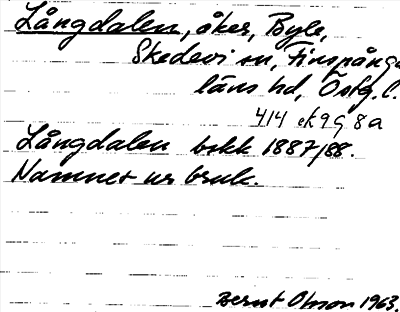 Långdalen, åker, Byle,
Skedevi sn, Finspånga
läns hd, Östg. l.
414 ek 9 g 8 a
Långdalen bskk 1887/88.
Namnet ur bruk.
Bernt Olsson 1963.